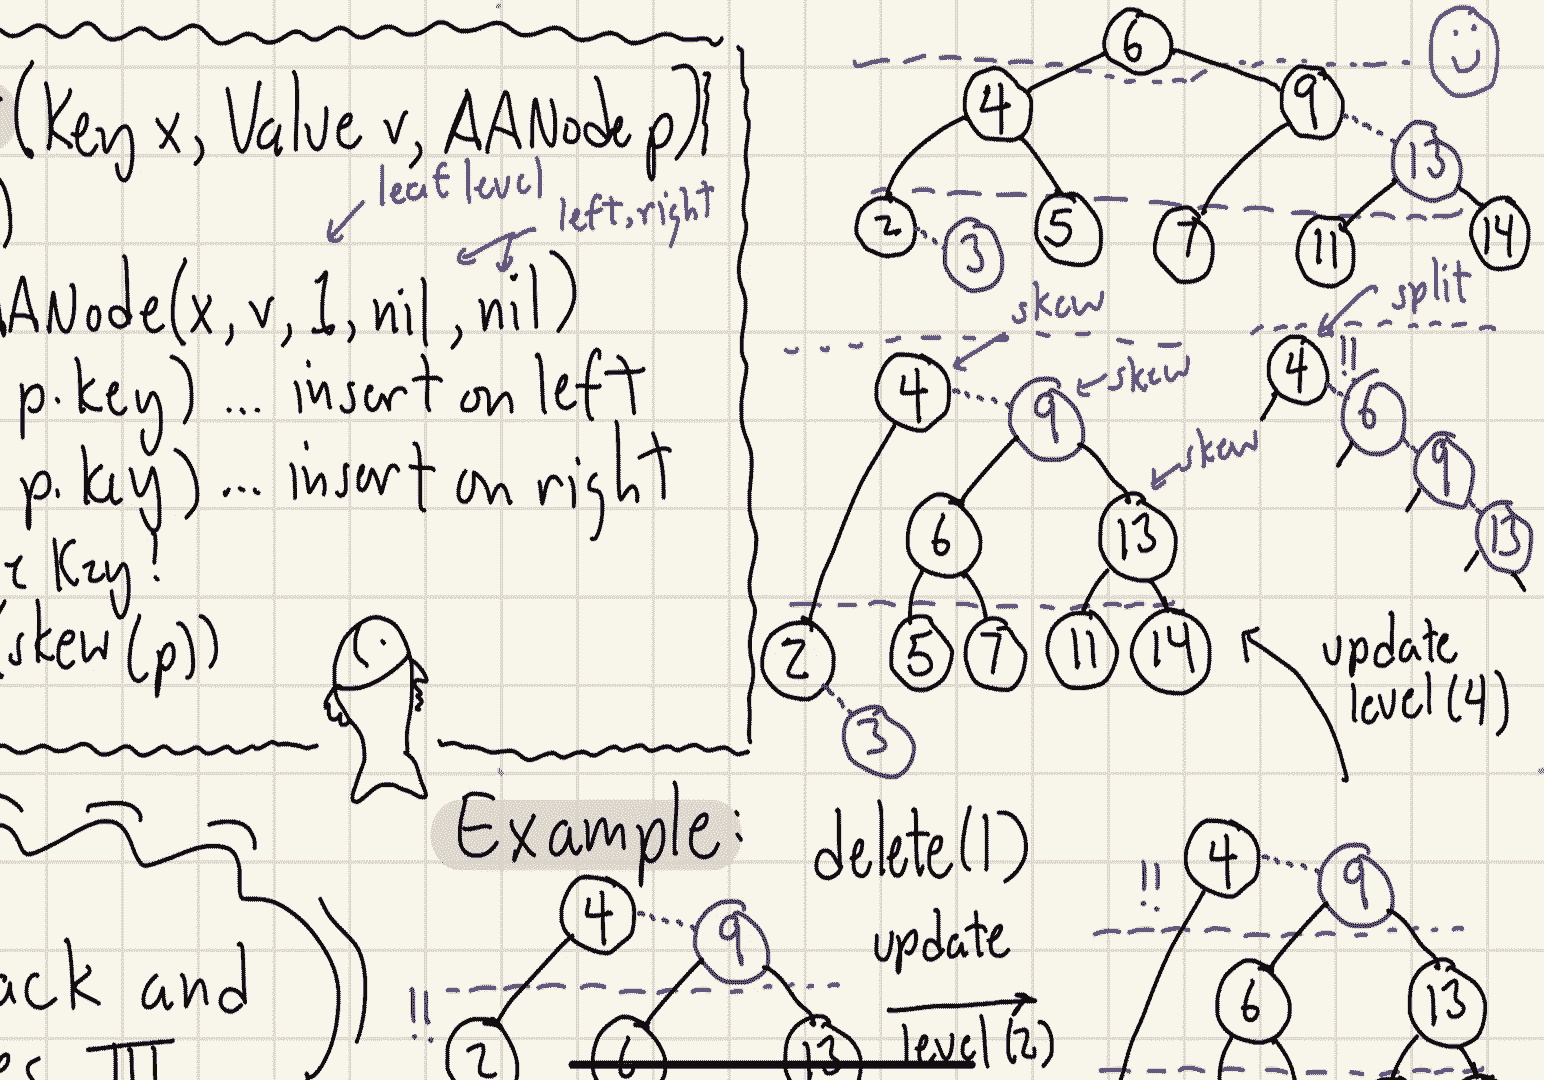 (Key x, Value v, AANode p){
leaf level
left, right
AANode(x, v, 1, nil, nil)
p.key) ... insert on left
p.key) ... insert on right
key!
skew(p))
6
4 9
13
2 3 5 7 11 14
skew
split
4 9
skew
skew
6 13
2 5 7 11 14
3
4 !!
6
9
13
update
level(4)
Example: delete(1)
update
level(2)
4 9
!!
2 6 13
!!
4 9
6 13
ack and